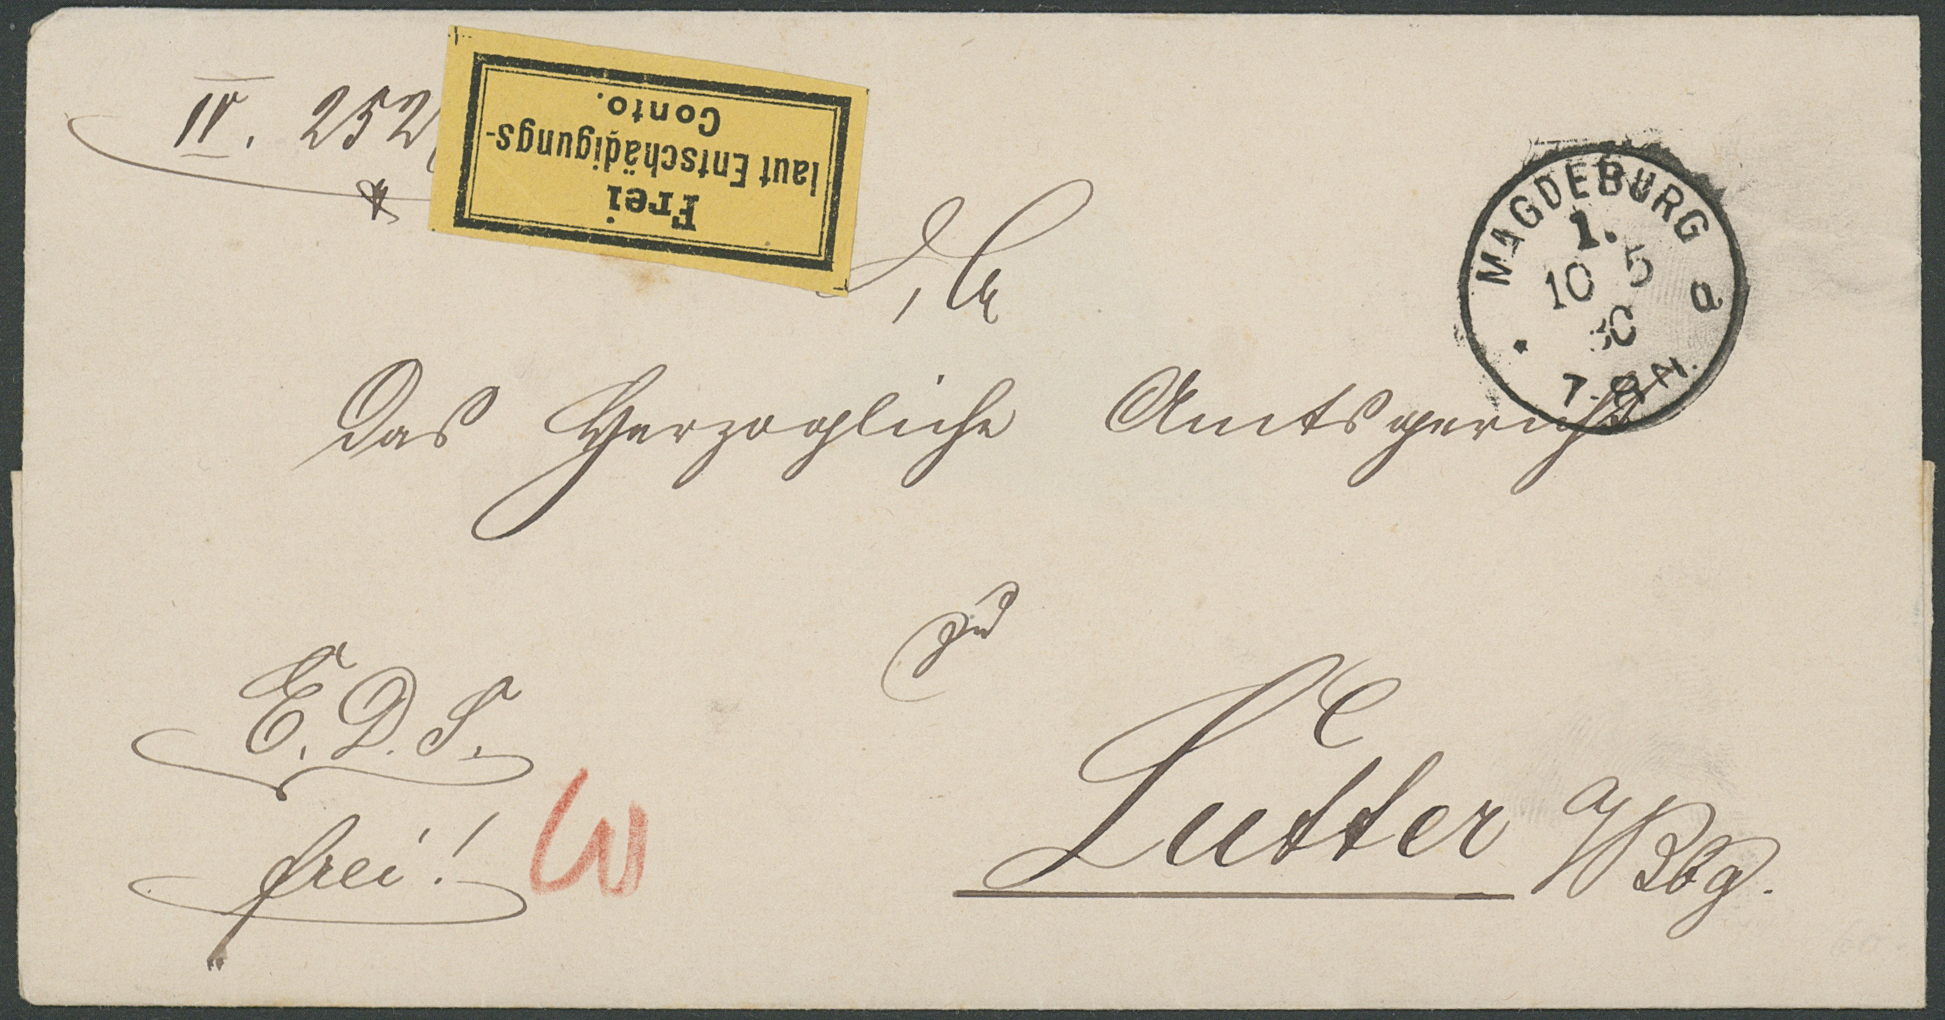 IV. 252
Frei
laut Entschädigungs-
Conto.
MAGDEBURG
1.
10 5
80
a
*
7-8 N.
Das Herzogliche Amtsgericht
zu
Lutter a/Bbg.
E. D. S.
frei!